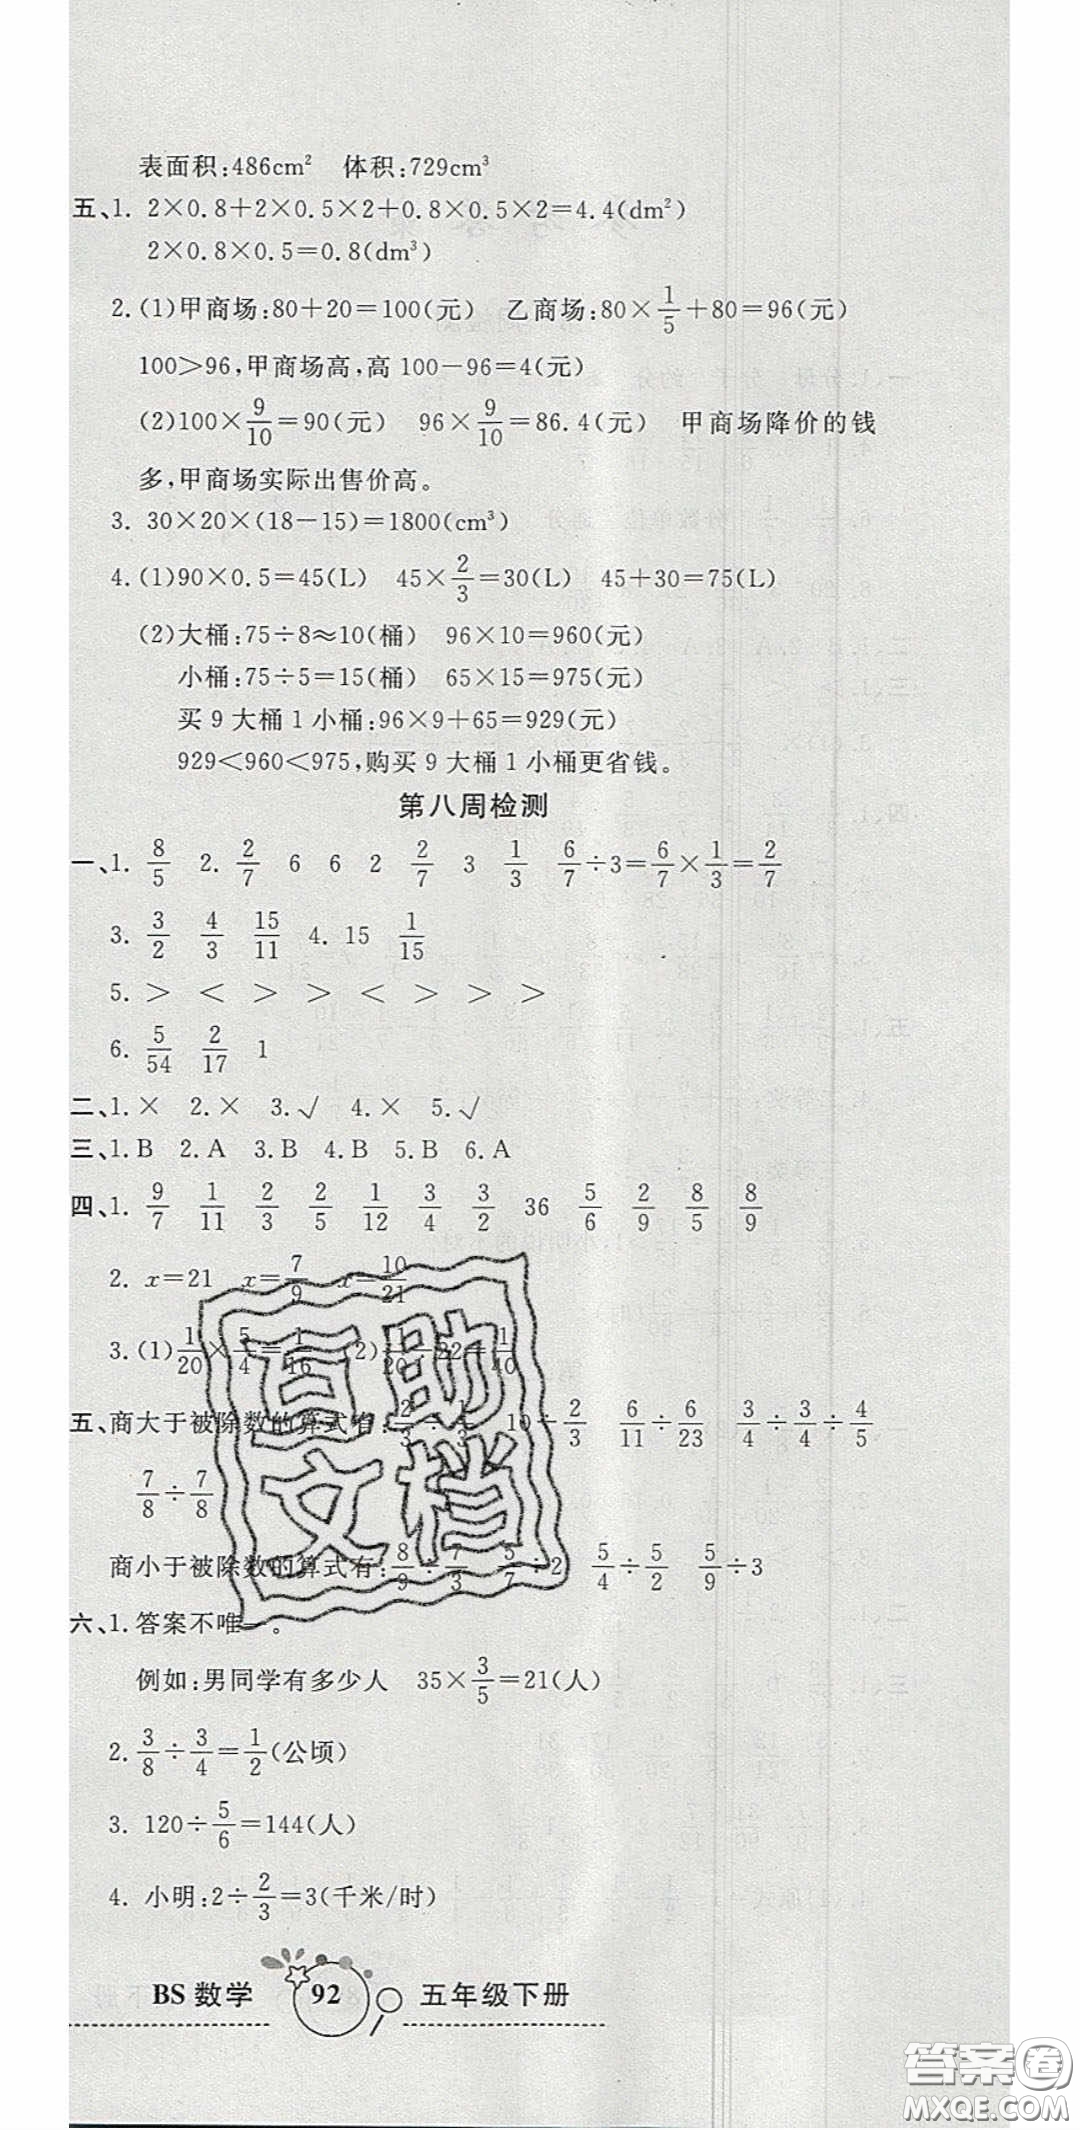 表面积:486cm² 体积:729cm³
五、1. 2×0.8+2×0.5×2+0.8×0.5×2=4.4(dm²)
2×0.8×0.5=0.8(dm³)
2.(1)甲商场:80+20=100(元) 乙商场:80×1/5+80=96(元)
100>96,甲商场高,高 100-96=4(元)
(2)100×9/10=90(元) 96×9/10=86.4(元) 甲商场降价的钱
多,甲商场实际出售价高。
3. 30×20×(18-15)=1800(cm³)
4.(1)90×0.5=45(L) 45×2/3=30(L) 45+30=75(L)
(2)大桶:75÷8≈10(桶) 96×10=960(元)
小桶:75÷5=15(桶) 65×15=975(元)
买 9 大桶 1 小桶:96×9+65=929(元)
929<960<975,购买 9 大桶 1 小桶更省钱。
第八周检测
一、1. 8/5 2. 2/7 6 6 2 2/7 3 1/3 6/7÷3=6/7×1/3=2/7
3. 3/2 4/3 15/11 4. 15 1/15
5. > < > > < > > >
6. 5/54 2/17 1
二、1.× 2.× 3.√ 4.× 5.√
三、1.B 2.A 3.B 4.B 5.B 6.A
四、1. 9/7 1/11 2/3 2/5 1/12 3/4 3/2 36 5/6 2/9 8/5 8/9
2. x=21 x=7/9 x=10/21
3.(1)1/20×5/4=1/16 (2)1/20÷22=1/40
五、商大于被除数的算式有:2/3÷1/3 10÷2/3 6/11÷6/23 3/4÷3/4÷4/5
7/8÷7/8
商小于被除数的算式有:8/9÷7/3 5/7÷2 5/4÷5/2 5/9÷3
六、1.答案不唯一。
例如:男同学有多少人 35×3/5=21(人)
2. 3/8÷3/4=1/2(公顷)
3. 120÷5/6=144(人)
4. 小明:2÷2/3=3(千米/时)
BS 数学 92 五年级下册
百助
文档
答案圈
MXQE.COM